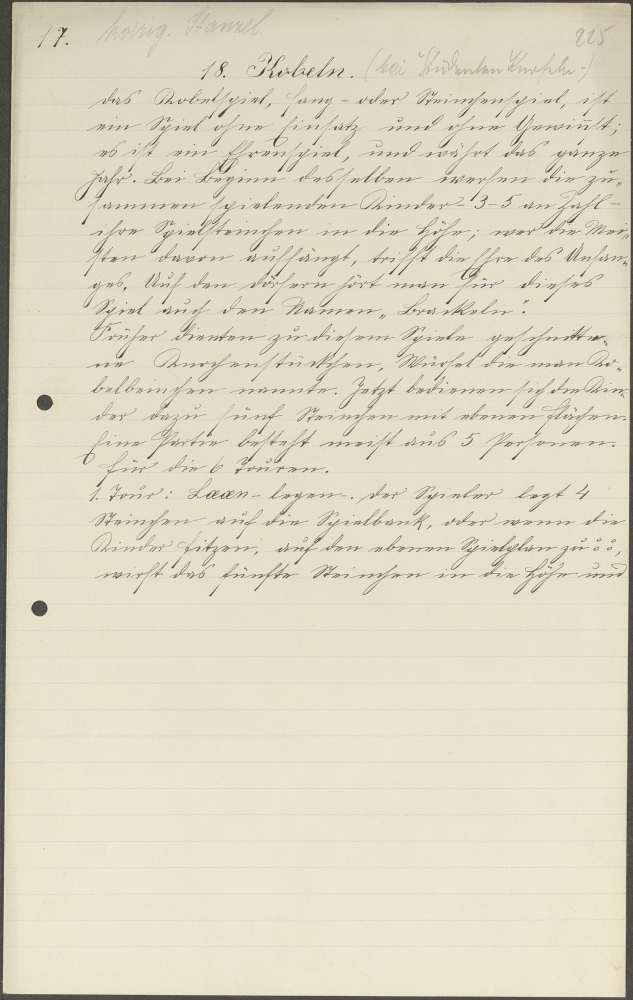 17. Stanzel. 225
18. Kobeln. (bei Studenten Knobeln.)
das Kobelspiel, Fang- oder Steinchenspiel, ist
ein Spiel ohne Einsatz und ohne Gewinnst;
es ist ein Ehrenspiel, und währt das ganze
Jahr. Bei Beginn desselben werfen die zu-
sammen spielenden Kinder - 3-5 an Zahl -
ihre Spielsteinchen in die Höhe; wer die Mei-
sten davon auffängt, trifft die Ehre des Anfan-
ges. Auf den Dörfern hört man für dieses
Spiel auch den Namen „Brackeln".
Früher dienten zu diesem Spiele geschnitte-
ne Knochenstückchen, Würfel die man Ko-
belbeinchen nannte. Jetzt bedienen sich die Kin-
der dazu fünf Steinchen mit ebenen Flächen.
Eine Partie besteht meist aus 5 Personen.
Für die 6 Touren.
1. Tour: legen. der Spieler legt 4
Steinchen auf die Spielbank, oder wenn die
Kinder sitzen, auf den ebenen Spielplan zu
wirft das fünfte Steinchen in die Höhe und